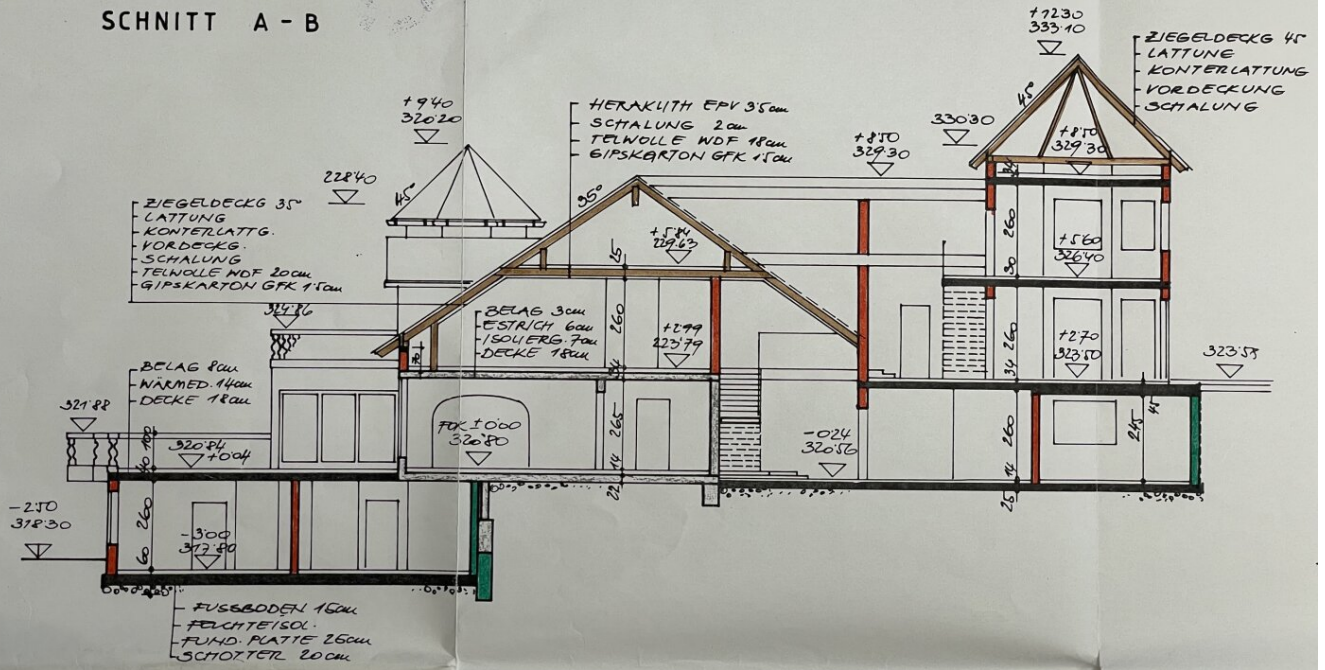 SCHNITT A - B
+12·30
333·10
ZIEGELDECKG 45°
LATTUNG
KONTERLATTUNG
VORDECKUNG
SCHALUNG
45°
+9·40
320·20
HERAKLITH EPV 3·5cm
SCHALUNG 2cm
TELWOLLE WDF 18cm
GIPSKARTON GFK 1·5cm
+8·50
329·30
330·30
+8·50
329·30
34
228·40
45°
35°
ZIEGELDECKG 35°
LATTUNG
KONTERLATTG.
VORDECKG.
SCHALUNG
TELWOLLE WDF 20cm
GIPSKARTON GFK 1·5cm
+5·84
229·63
25
260
+5·60
326·40
30
324·86
BELAG 3cm
ESTRICH 6cm
ISOLIERG. 7cm
DECKE 18cm
260
+2·99
223·79
34
260
+2·70
323·50
34
323·55
BELAG 8cm
WÄRMED. 14cm
DECKE 18cm
321·88
100
40
320·84
+0·04
FOK ±0·00
320·80
265
14
22
-0·24
320·56
260
14
25
245
45
-2·50
318·30
260
60
-3·00
317·80
FUSSBODEN 16cm
FEUCHTEISOL.
FUND. PLATTE 25cm
SCHOTTER 20cm